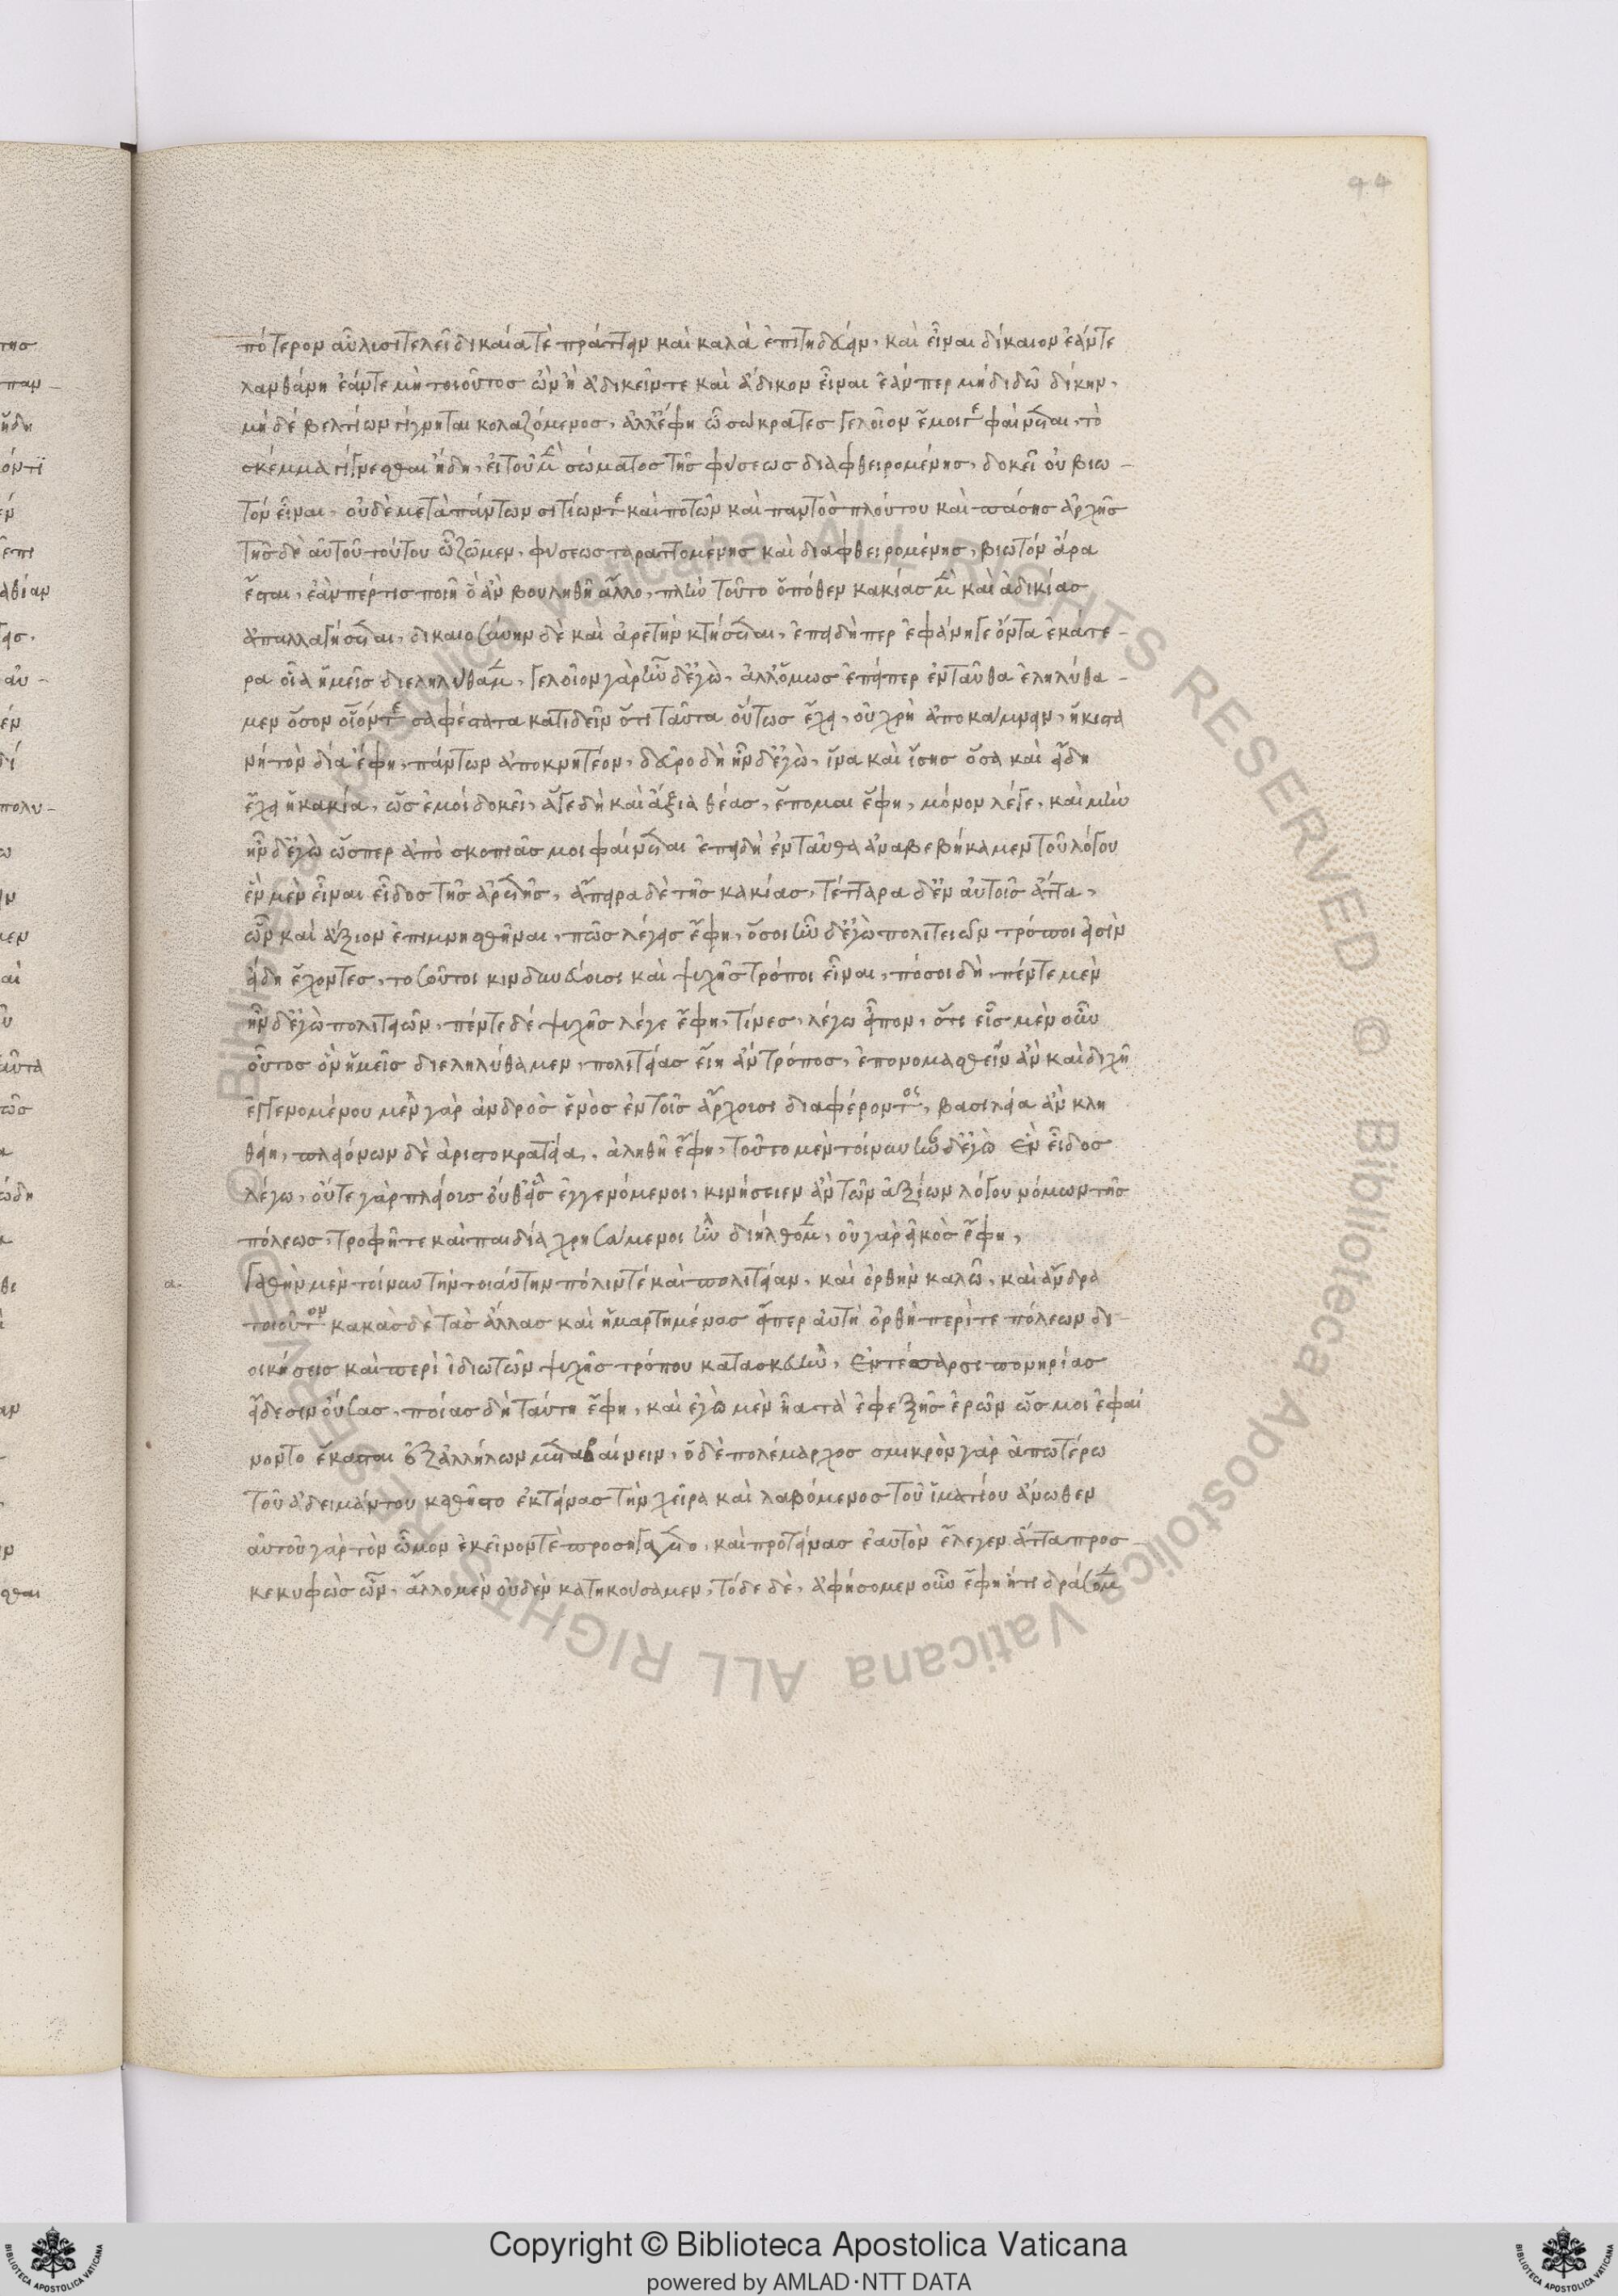 94
πότερον αὖ λυσιτελεῖ δίκαιά τὲ πράττειν καὶ καλὰ ἐπιτηδεύειν, καὶ εἶναι δίκαιον ἐάντε
λανθάνη ἐάντε μὴ τοιοῦτος ὢν ἢ ἀδικεῖν τε καὶ ἄδικον εἶναι ἐάνπερ μὴ διδῶ δίκην,
μὴ δὲ βελτίων γίγνηται κολαζόμενος, ἀλλ' ἔφη ὦ σώκρατες γελοῖον ἔμοιγε φαίνεται, τὸ
σκέμμα γίγνεσθαι ἤδη, εἰ τοῦ μὲν σώματος τῆς φύσεως διαφθειρομένης, δοκεῖ οὐ βιω-
τὸν εἶναι, οὐδὲ μετὰ πάντων σιτίων τε καὶ ποτῶν καὶ παντὸς πλούτου καὶ πάσης ἀρχῆς
τῆς δὲ αὐτοῦ τούτου ᾧ ζῶμεν, φύσεως ταραττομένης καὶ διαφθειρομένης, βιωτὸν ἄρα
ἔσται, ἐάνπερ τις ποιῆ ὃ ἂν βουληθῆ ἄλλο, πλὴν τοῦτο ὁπόθεν κακίας μὲν καὶ ἀδικίας
ἀπαλλαγήσεται, δικαιοσύνην δὲ καὶ ἀρετὴν κτήσεται, ἐπειδήπερ ἐφάνη γε ὄντα ἑκάτε-
ρα οἷα ἡμεῖς διεληλύθαμεν, γελοῖον γὰρ ἦν δ' ἐγὼ, ἀλλ' ὅμως ἐπείπερ ἐνταῦθα ἐληλύθα-
μεν ὅσον οἷόν τε σαφέστατα κατιδεῖν ὅτι ταῦτα οὕτως ἔχει, οὐ χρὴ ἀποκάμνειν, ἥκιστα
νὴ τὸν δία ἔφη, πάντων ἀποκνητέον, δεῦρο δὴ ἦν δ' ἐγὼ, ἵνα καὶ ἴσης ὅσα καὶ εἴδη
ἔχει ἡ κακία, ὡς ἐμοὶ δοκεῖ, ἅ γε δὴ καὶ ἄξια θέας, ἕπομαι ἔφη, μόνον λέγε, καὶ μὴν
ἦν δ' ἐγὼ ὥσπερ ἀπὸ σκοπιᾶς μοι φαίνεται ἐπειδὴ ἐνταῦθα ἀναβεβήκαμεν τοῦ λόγου
ἓν μὲν εἶναι εἶδος τῆς ἀρετῆς, ἄπειρα δὲ τῆς κακίας, τέτταρα δ' ἐν αὐτοῖς ἄττα,
ὧν καὶ ἄξιον ἐπιμνησθῆναι, πῶς λέγεις ἔφη, ὅσοι ἦν δ' ἐγὼ πολιτειῶν τρόποι εἰσὶν
εἴδη ἔχοντες, τοσοῦτοι κινδυνεύουσι καὶ ψυχῆς τρόποι εἶναι, πόσοι δὴ, πέντε μὲν
ἦν δ' ἐγὼ πολιτειῶν, πέντε δὲ ψυχῆς λέγε ἔφη, τίνες, λέγω εἶπον, ὅτι εἷς μὲν οὖν
οὗτος ὃν ἡμεῖς διεληλύθαμεν, πολιτείας εἴη ἂν τρόπος, ἐπονομασθείη ἂν καὶ διχῆ
ἐγγενομένου μὲν γὰρ ἀνδρὸς ἑνὸς ἐν τοῖς ἄρχουσι διαφέροντος, βασιλεία ἂν κλη
θείη, πλειόνων δὲ ἀριστοκρατεία, ἀληθῆ ἔφη, τοῦτο μὲν τοίνυν ἦν δ' ἐγὼ ἓν εἶδος
λέγω, οὔτε γὰρ πλείους οὔθ' εἷς ἐγγενόμενοι, κινήσειεν ἂν τῶν ἀξίων λόγου νόμων τῆς
πόλεως, τροφῆ τε καὶ παιδία χρησάμενοι ἣν διήλθομεν, οὐ γὰρ εἰκὸς ἔφη,
α.
γαθὴν μὲν τοίνυν τὴν τοιάυτην πόλιν τέ καὶ πολιτείαν, καὶ ὀρθὴν καλῶ, καὶ ἄνδρα
τοιοῦτον κακὰς δὲ τὰς ἄλλας καὶ ἡμαρτημένας εἴπερ αὐτὴ ὀρθὴ περί τε πόλεων δι-
οικήσεις καὶ περὶ ἰδιωτῶν ψυχῆς τρόπου κατασκευὴν, ἐν τέσαρσι πονηρίας
εἴδεσιν οὔσας, ποίας δὴ ταύτη ἔφη, καὶ ἐγὼ μὲν ἦα τὰ ἐφεξῆς ἐρῶν ὥς μοι ἐφαί
νοντο ἕκασται ἐξ ἀλλήλων μεταβαίνειν, ὁ δὲ πολέμαρχος σμικρὸν γὰρ ἀπωτέρω
τοῦ ἀδειμάντου καθῆστο ἐκτείνας τὴν χεῖρα καὶ λαβόμενος τοῦ ἱματίου ἄνωθεν
αὐτοῦ γὰρ τὸν ὦμον ἐκεῖνον τὲ προσηγάγετο, καὶ προτείνας ἑαυτὸν ἔλεγεν ἄττα προς
κεκυφὼς ὧν, ἄλλο μὲν οὐδὲν κατηκούσαμεν, τόδε δὲ, ἀφήσομεν οὖν ἔφη ἤ τι δράσομεν